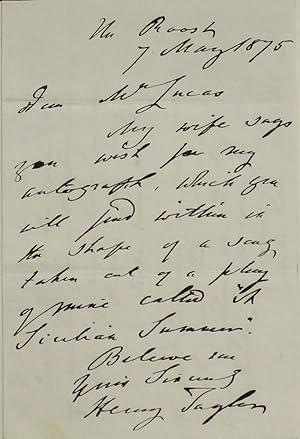 The Roost
7 May 1875
Dear Mrs Lucas
My wife says
you wish for my
autograph, which you
will find within in
the shape of a song
taken out of a play
of mine called "A
Sicilian Summer".
Believe me
Yours Sincerely
Henry Taylor